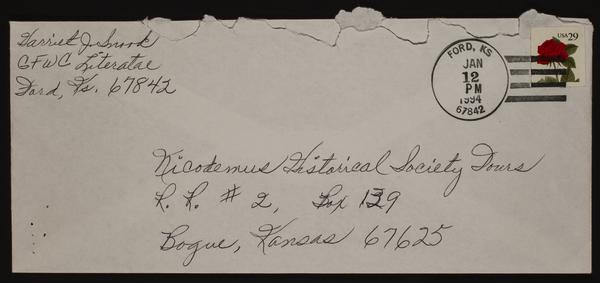 Harriet J. Snook
GFWC Literatae
Ford, Ks. 67842
FORD, KS
JAN
12
PM
1994
67842
USA 29
Nicodemus Historical Society Tours
R. R. # 2, Box 139
Bogue, Kansas 67625